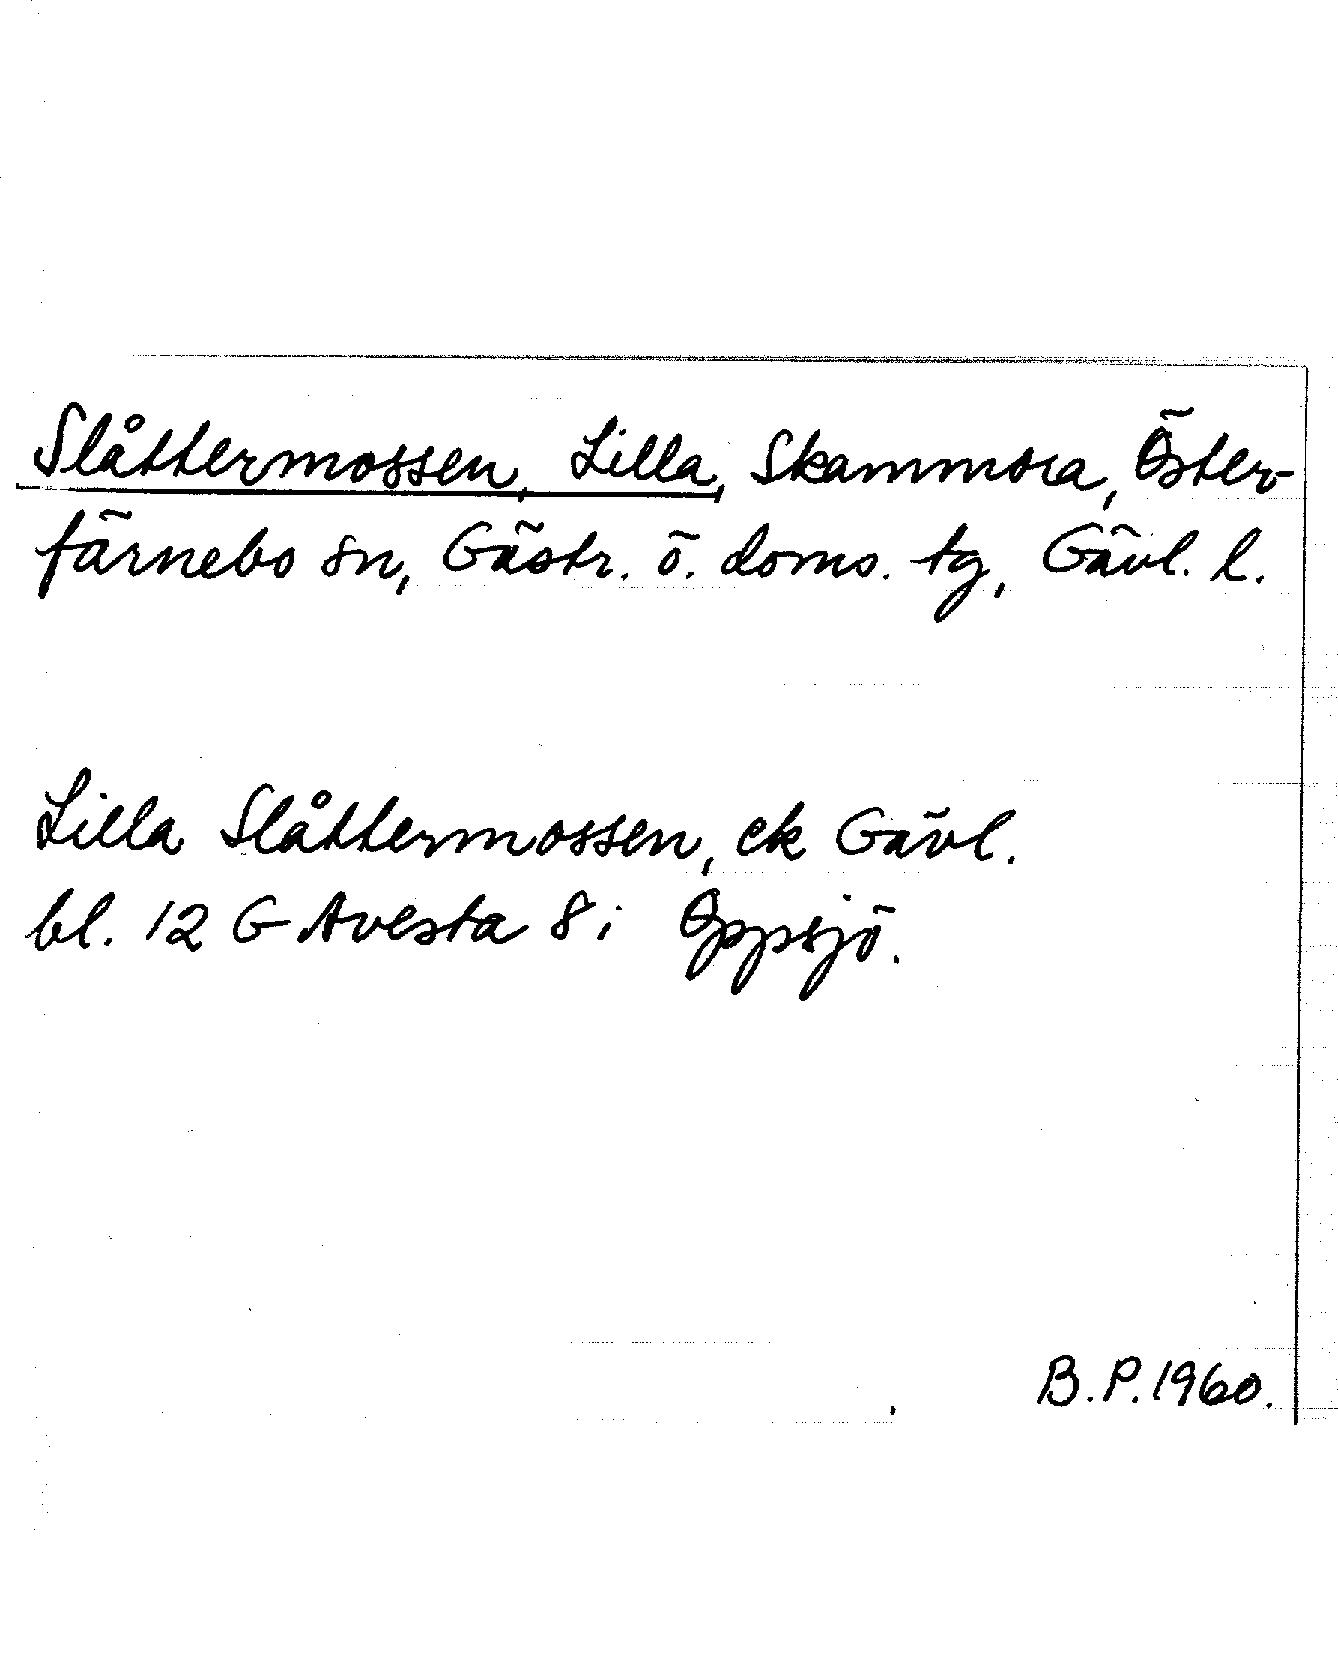 Slåttermossen, Lilla, Skammora, Öster-
färnebo sn, Gästr. ö. doms. tg, Gävl. l.
Lilla Slåttermossen, ek Gävl.
bl. 12 G Avesta 8 i Öppsjö.
B.P. 1960.